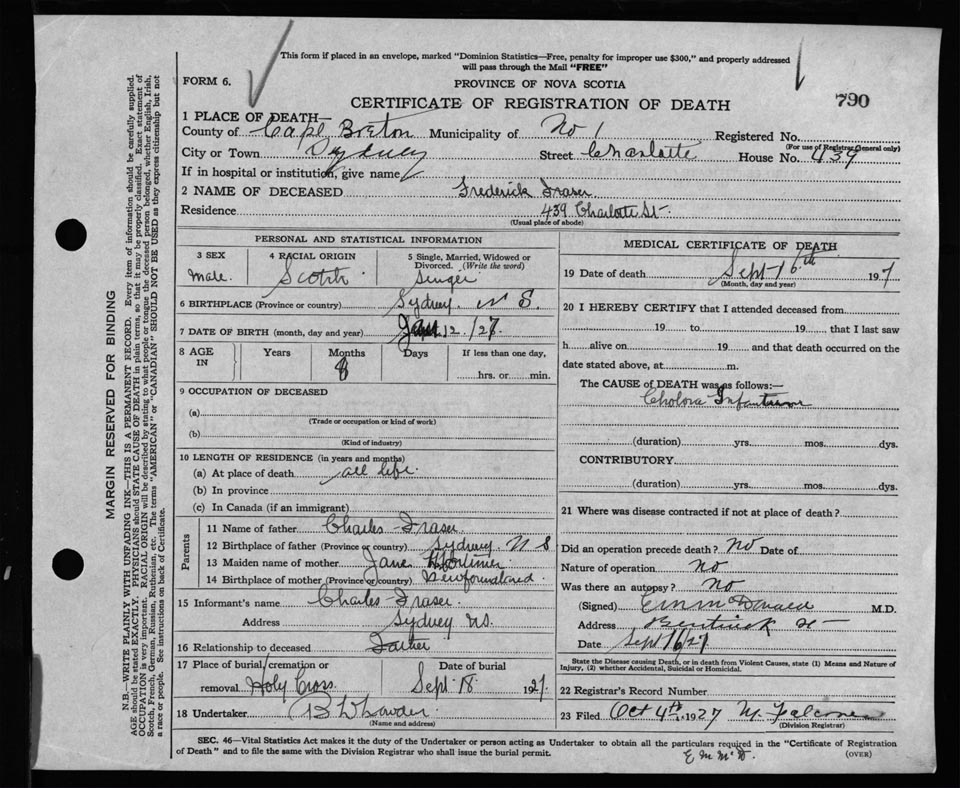 This form if placed in an envelope, marked "Dominion Statistics—Free, penalty for improper use $300," and properly addressed
will pass through the Mail "FREE"
FORM 6.
PROVINCE OF NOVA SCOTIA
CERTIFICATE OF REGISTRATION OF DEATH
790
1 PLACE OF DEATH—
County of Cape Breton Municipality of No 1 Registered No.
(For use of Registrar General only)
City or Town Sydney Street Charlotte House No. 439
If in hospital or institution, give name
2 NAME OF DECEASED Frederick Fraser
Residence 439 Charlotte St.
(Usual place of abode)
PERSONAL AND STATISTICAL INFORMATION
3 SEX
Male.
4 RACIAL ORIGIN
Scotch
5 Single, Married, Widowed or
Divorced. (Write the word)
Single
6 BIRTHPLACE (Province or country) Sydney N S.
7 DATE OF BIRTH (month, day and year) Jan 12/27.
8 AGE
IN
Years
Months
8
Days
If less than one day,
hrs. or min.
9 OCCUPATION OF DECEASED
(a)
(Trade or occupation or kind of work)
(b)
(Kind of industry)
10 LENGTH OF RESIDENCE (in years and months)
(a) At place of death all life.
(b) In province
(c) In Canada (if an immigrant)
Parents
11 Name of father Charles Fraser.
12 Birthplace of father (Province or country) Sydney N S
13 Maiden name of mother Jane
14 Birthplace of mother (Province or country) Newfoundland.
15 Informant's name Charles Fraser.
Address Sydney N.S.
16 Relationship to deceased Father
17 Place of burial, cremation or
removal Holy Cross.
Date of burial
Sept 18 1927
18 Undertaker
(Name and address)
MEDICAL CERTIFICATE OF DEATH
19 Date of death Sept 16th 1927
(Month, day and year)
20 I HEREBY CERTIFY that I attended deceased from
19 to 19, that I last saw
h alive on 19 and that death occurred on the
date stated above, at m.
The CAUSE of DEATH was as follows:—
Cholora Infantum
(duration) yrs. mos. dys.
CONTRIBUTORY.
(duration) yrs. mos. dys.
21 Where was disease contracted if not at place of death?
Did an operation precede death? No Date of
Nature of operation No
Was there an autopsy? No
(Signed) E M McDonald M.D.
Address Bentinck St
Date Sept 16/27
State the Disease causing Death, or in death from Violent Causes, state (1) Means and Nature of
Injury, (2) whether Accidental, Suicidal or Homicidal.
22 Registrar's Record Number
23 Filed Oct 4th 1927
(Division Registrar)
SEC. 46—Vital Statistics Act makes it the duty of the Undertaker or person acting as Undertaker to obtain all the particulars required in the "Certificate of Registration
of Death" and to file the same with the Division Registrar who shall issue the burial permit.
E M McD.
(OVER)
MARGIN RESERVED FOR BINDING
N.B.—WRITE PLAINLY WITH UNFADING INK—THIS IS A PERMANENT RECORD. Every item of information should be carefully supplied.
AGE should be stated EXACTLY. PHYSICIANS should STATE CAUSE OF DEATH in plain terms, so that it may be properly classified. Exact statement of
OCCUPATION is very important. RACIAL ORIGIN will be described by stating to what people or tongue the deceased person belonged, whether English, Irish,
Scotch, French, German, Russian, Ruthenian, etc. The terms "AMERICAN" or "CANADIAN" SHOULD NOT BE USED as they express citizenship but not
a race or people. See instructions on back of Certificate.